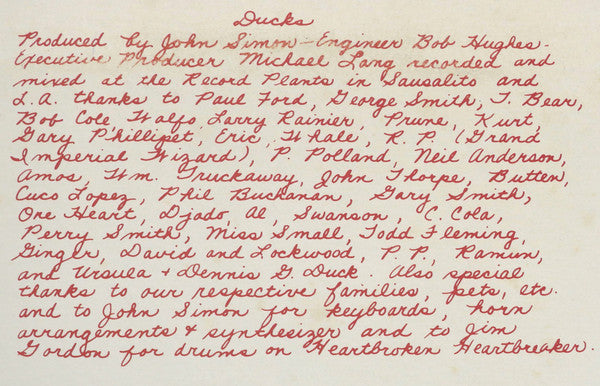 Ducks
Produced by John Simon - Engineer Bob Hughes -
Executive Producer Michael Lang recorded and
mixed at the Record Plants in Sausalito and
L.A. thanks to Paul Ford, George Smith, T. Bear,
Bob Cole, Walfo, Larry Rainier, Prune, Kurt,
Gary Phillipet, Eric, Whale, R. P. (Grand
Imperial Wizard), P. Polland, Neil Anderson,
Amos, Wm. Truckaway, John Thorpe, Butten,
Cuco Lopez, Phil Buchanan, Gary Smith,
One Heart, Djado, Al, Swanson, C. Cola,
Perry Smith, Miss Small, Todd Fleming,
Ginger, David and Lockwood, P. P., Ramun,
and Ursula + Dennis G. Duck. Also special
thanks to our respective families, pets, etc.
and to John Simon for keyboards, horn
arrangements & synthesizer and to Jim
Gordon for drums on Heartbroken Heartbreaker.